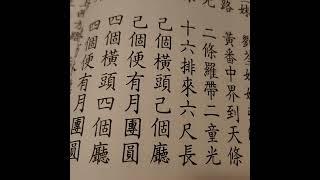 黃番中界到天條
二條羅帶二童光
十六排來六尺長
己個橫頭己個廳
己個便有月團圓
四個橫頭四個廳
四個便有月團圓